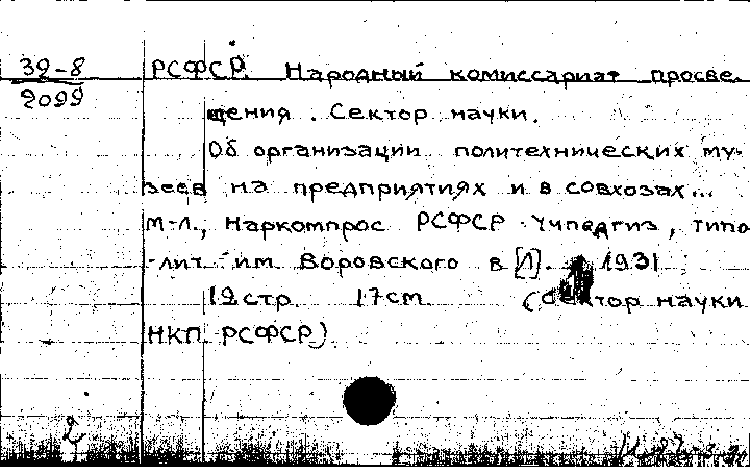 32-8
2099
РСФСР. Народный комиссариат просве-
щения. Сектор науки.
Об организации политехнических му-
зеев на предприятиях и в совхозах...
М-Л., Наркомпрос РСФСР Учпедгиз, типо
-лит им Воровского в [Л]. 1931
12 стр. 17 см (Сектор науки
НКП РСФСР)
2